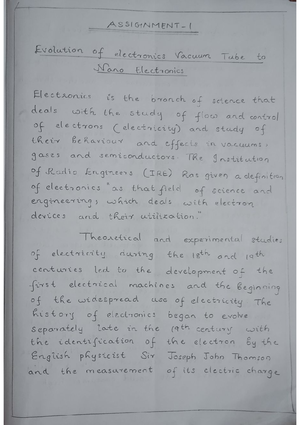 ASSIGNMENT-1
Evolution of electronics Vacuum Tube to
Nano Electronics
Electronics is the branch of science that
deals with the study of flow and control
of electrons (electricity) and study of
their behaviour and effects in vacuums,
gases and semiconductors. The Institution
of Radio Engineers (IRE) has given a definition
of electronics "as that field of science and
engineering, which deals with electron
devices and their utilisation."
Theoretical and experimental studies
of electricity during the 18th and 19th
centuries led to the development of the
first electrical machines and the beginning
of the widespread use of electricity. The
history of electronics began to evolve
separately late in the 19th century with
the identification of the electron by the
English physicist Sir Joseph John Thomson
and the measurement of its electric charge